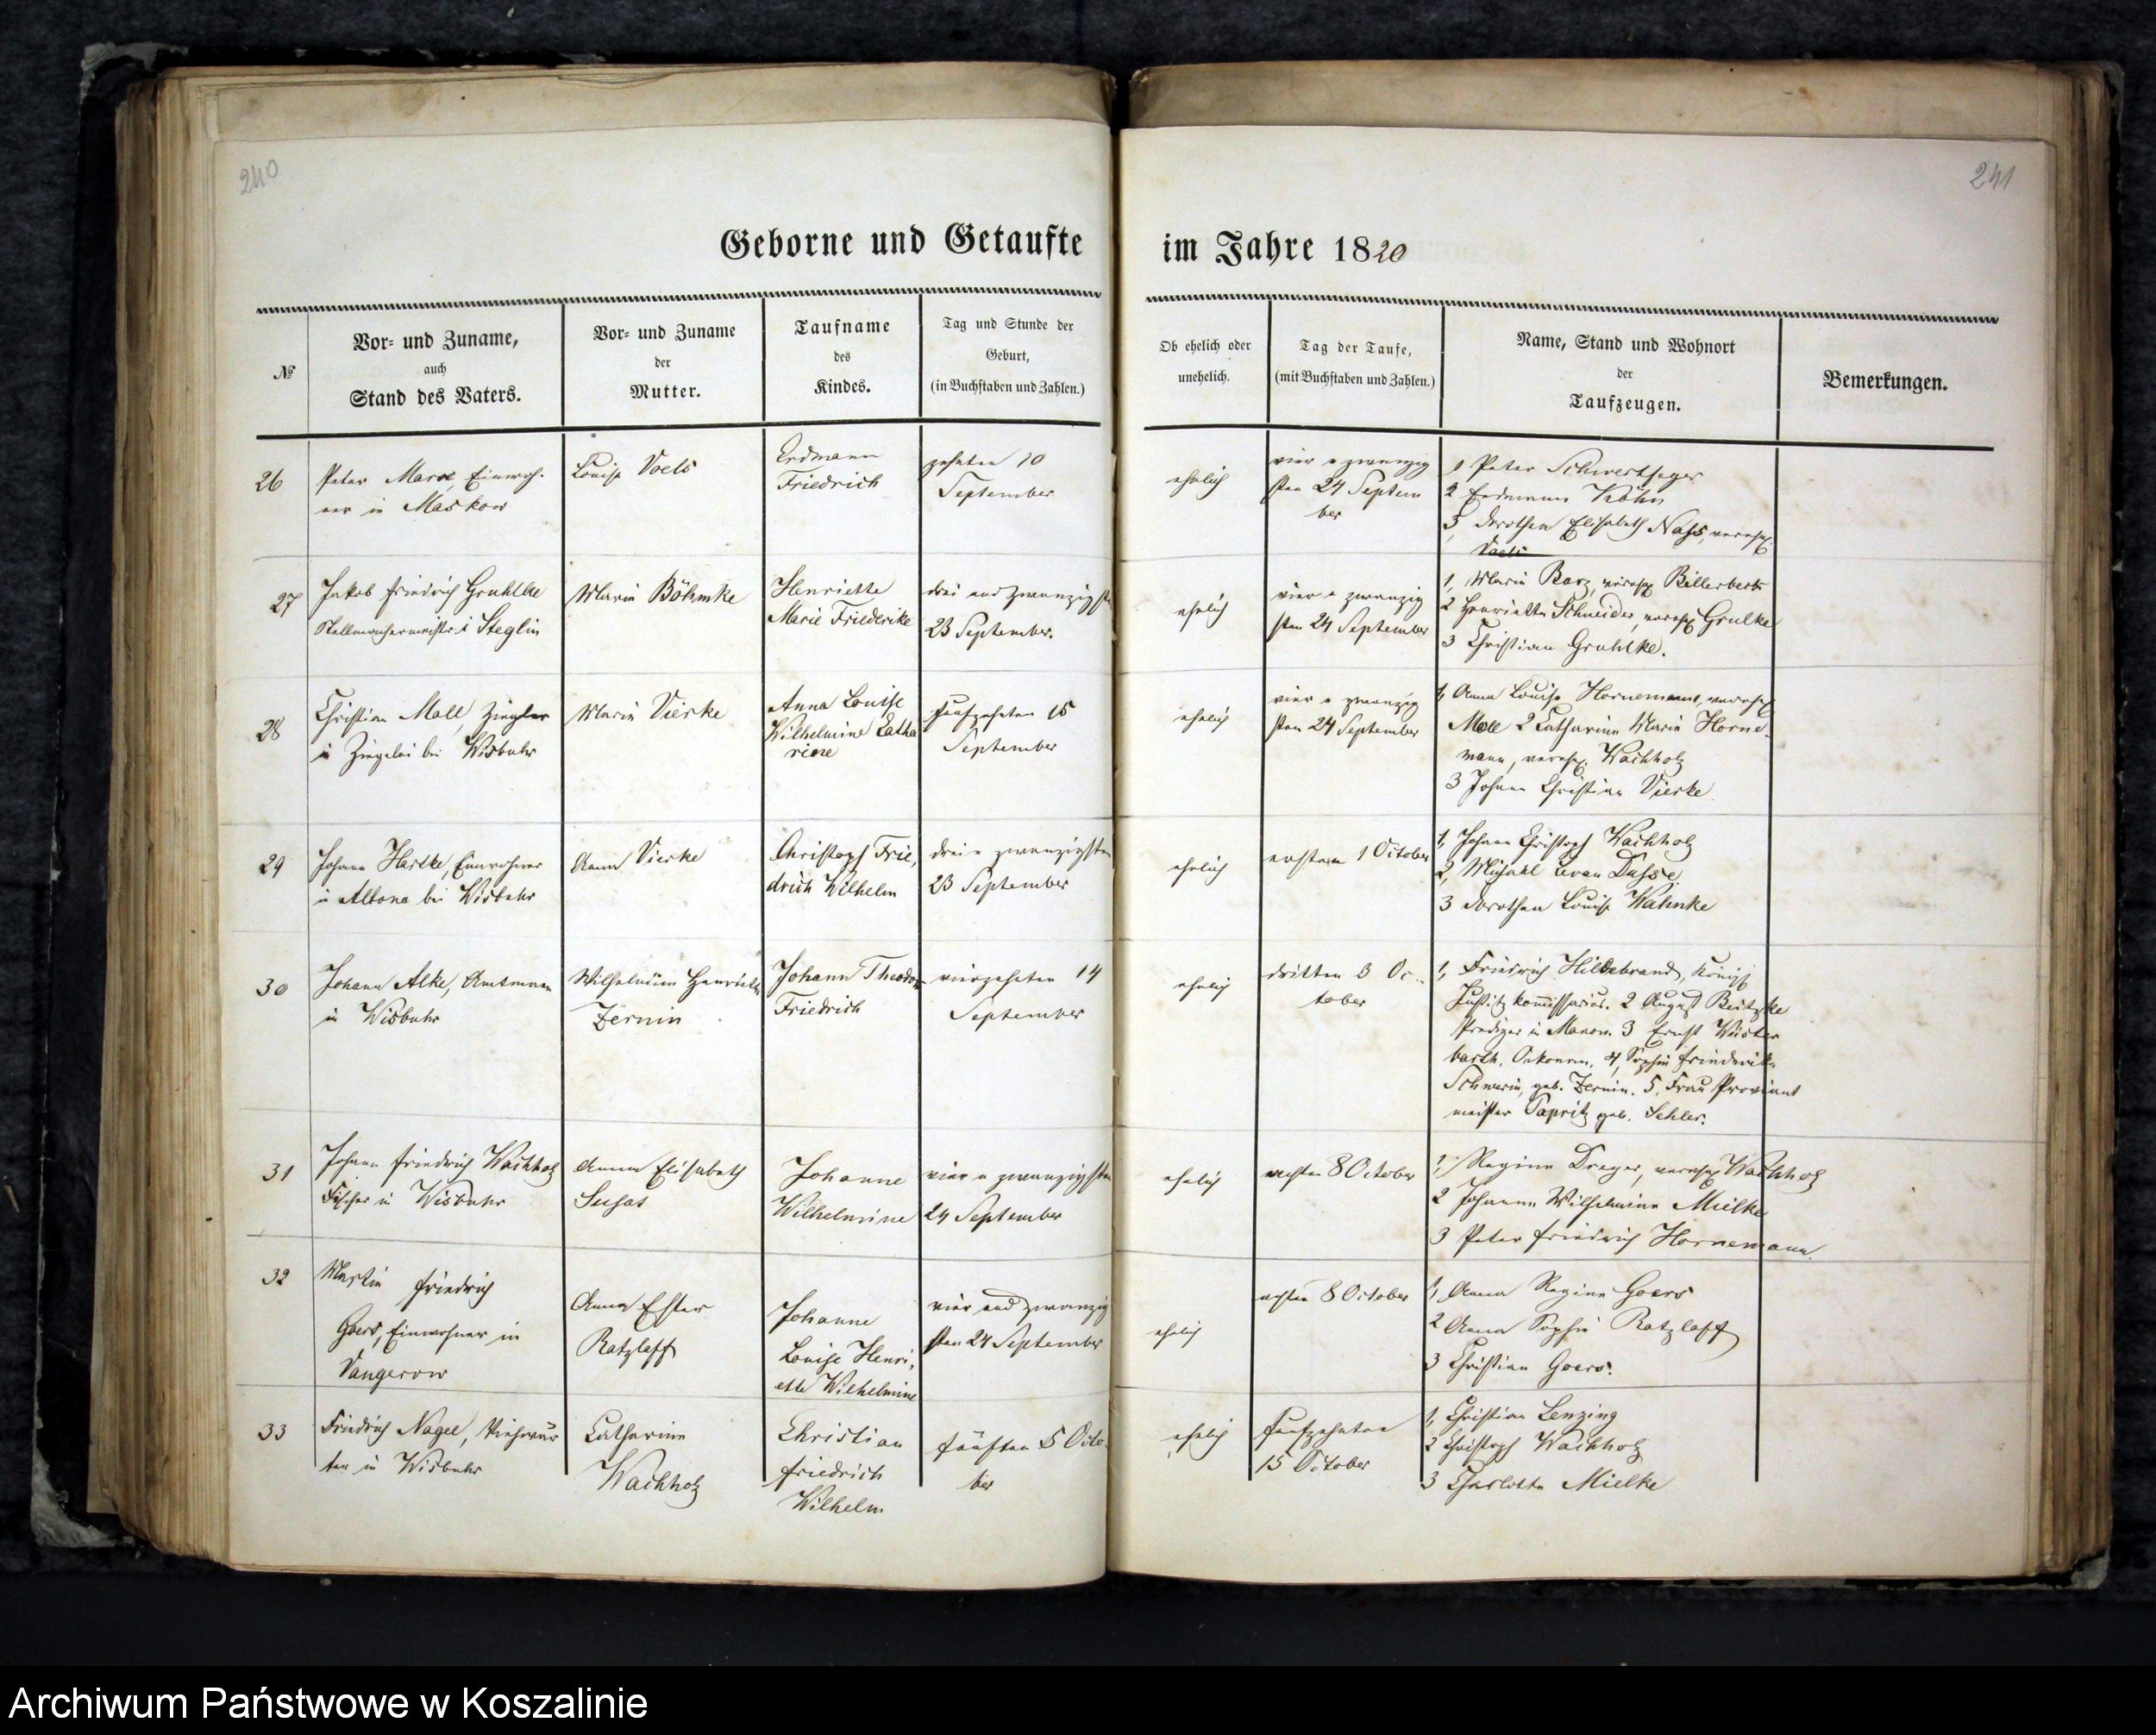 240
241
Geborne und Getaufte
im Jahre 1820
№
Vor- und Zuname,
auch
Stand des Vaters.
Vor- und Zuname
der
Mutter.
Taufname
des
Kindes.
Tag und Stunde der
Geburt,
(in Buchstaben und Zahlen.)
Ob ehelich oder
unehelich.
Tag der Taufe,
(mit Buchstaben und Zahlen.)
Name, Stand und Wohnort
der
Taufzeugen.
Bemerkungen.
26
Peter Einwoh-
ner in Maskow
Louise Voels
Erdmann
Friedrich
zehnten 10
September
ehelich
vier u zwanzig
sten 24 Septem
ber
1 Peter Schwertfeger
2 Erdmann Köhn
3, Dorothea Elisabeth Nass, vereh.
Voels
27
Jakob Friedrich Gruhlke
Stellmachermeister i Steglin
Maria Böhmke
Henriette
Marie Friederike
drei und zwanzigste
23 September.
ehelich
vier u zwanzig
sten 24 September
1, Maria Barz, vereh. Billerbeck
2 Henriette Schneider, vereh. Grulke
3 Christian Gruhlke.
28
Christian Moll, Ziegler
in Ziegelei bei Wisbuhr
Maria Vierke
Anna Louise
Wilhelmine Catha
rine
Funfzehnten 15
September
ehelich
vier u zwanzig
sten 24 September
1, Anna Louise Hornemann, vereh.
Moll 2 Catharina Maria Horne-
mann, vereh. Wachholz
3 Johann Christian Vierke
29
Johann Hartke, Einwohner
in Altona bei Wisbuhr
Anna Vierke
Christoph Frie,
drich Wilhelm
drei u zwanzigsten
23 September
ehelich
ersten 1 October
1, Johann Christoph Wachholz
2, Michael
3 Dorothea Louise Wahnke
30
Johann Alke, Amtmann
in Wisbuhr
Wilhelmine Henriette
Zernin
Johann Theodor
Friedrich
vierzehnten 14
September
ehelich
dritten 3 Oc-
tober
1, Friedrich Hildebrand, Königl
Justiz kommissarius. 2 August Beitzke
Prediger in Manow 3 Ernst Wüster
barth, Oekonom, 4, Sophie Friederike
Schwerin, geb. Zernin. 5, Frau Proviant
meister Papritz geb. Sehler.
31
Johann Friedrich Wachholz
Fischer in Wisbuhr
Anna Elisabeth
Johanne
Wilhelmine
vier u zwanzigsten
24 September
ehelich
achten 8 October
1, Regina Dreger, vereh. Wachholz
2 Johanna Wilhelmine Mielke
3 Peter Friedrich Hornemann.
32
Martin Friedrich
Goers, Einwohner in
Vangerow
Anna Ester
Ratzlaff
Johanne
Louise Henri,
ette Wilhelmine
vier und zwanzig
sten 24 September
ehelich
achten 8 October
1, Anna Regine Goers
2 Anna Sophie Ratzlaff
3 Christian Goers.
33
Friedrich Nagel, Viehwär
ter in Wisbuhr
Catharine
Wachholz
Christian
Friedrich
Wilhelm
fünften 5 Octo-
ber
ehelich
funfzehnten
15 October
1, Christian Lenzing
2 Christoph Wachholz
3 Charlotte Mielke
Archiwum Państwowe w Koszalinie